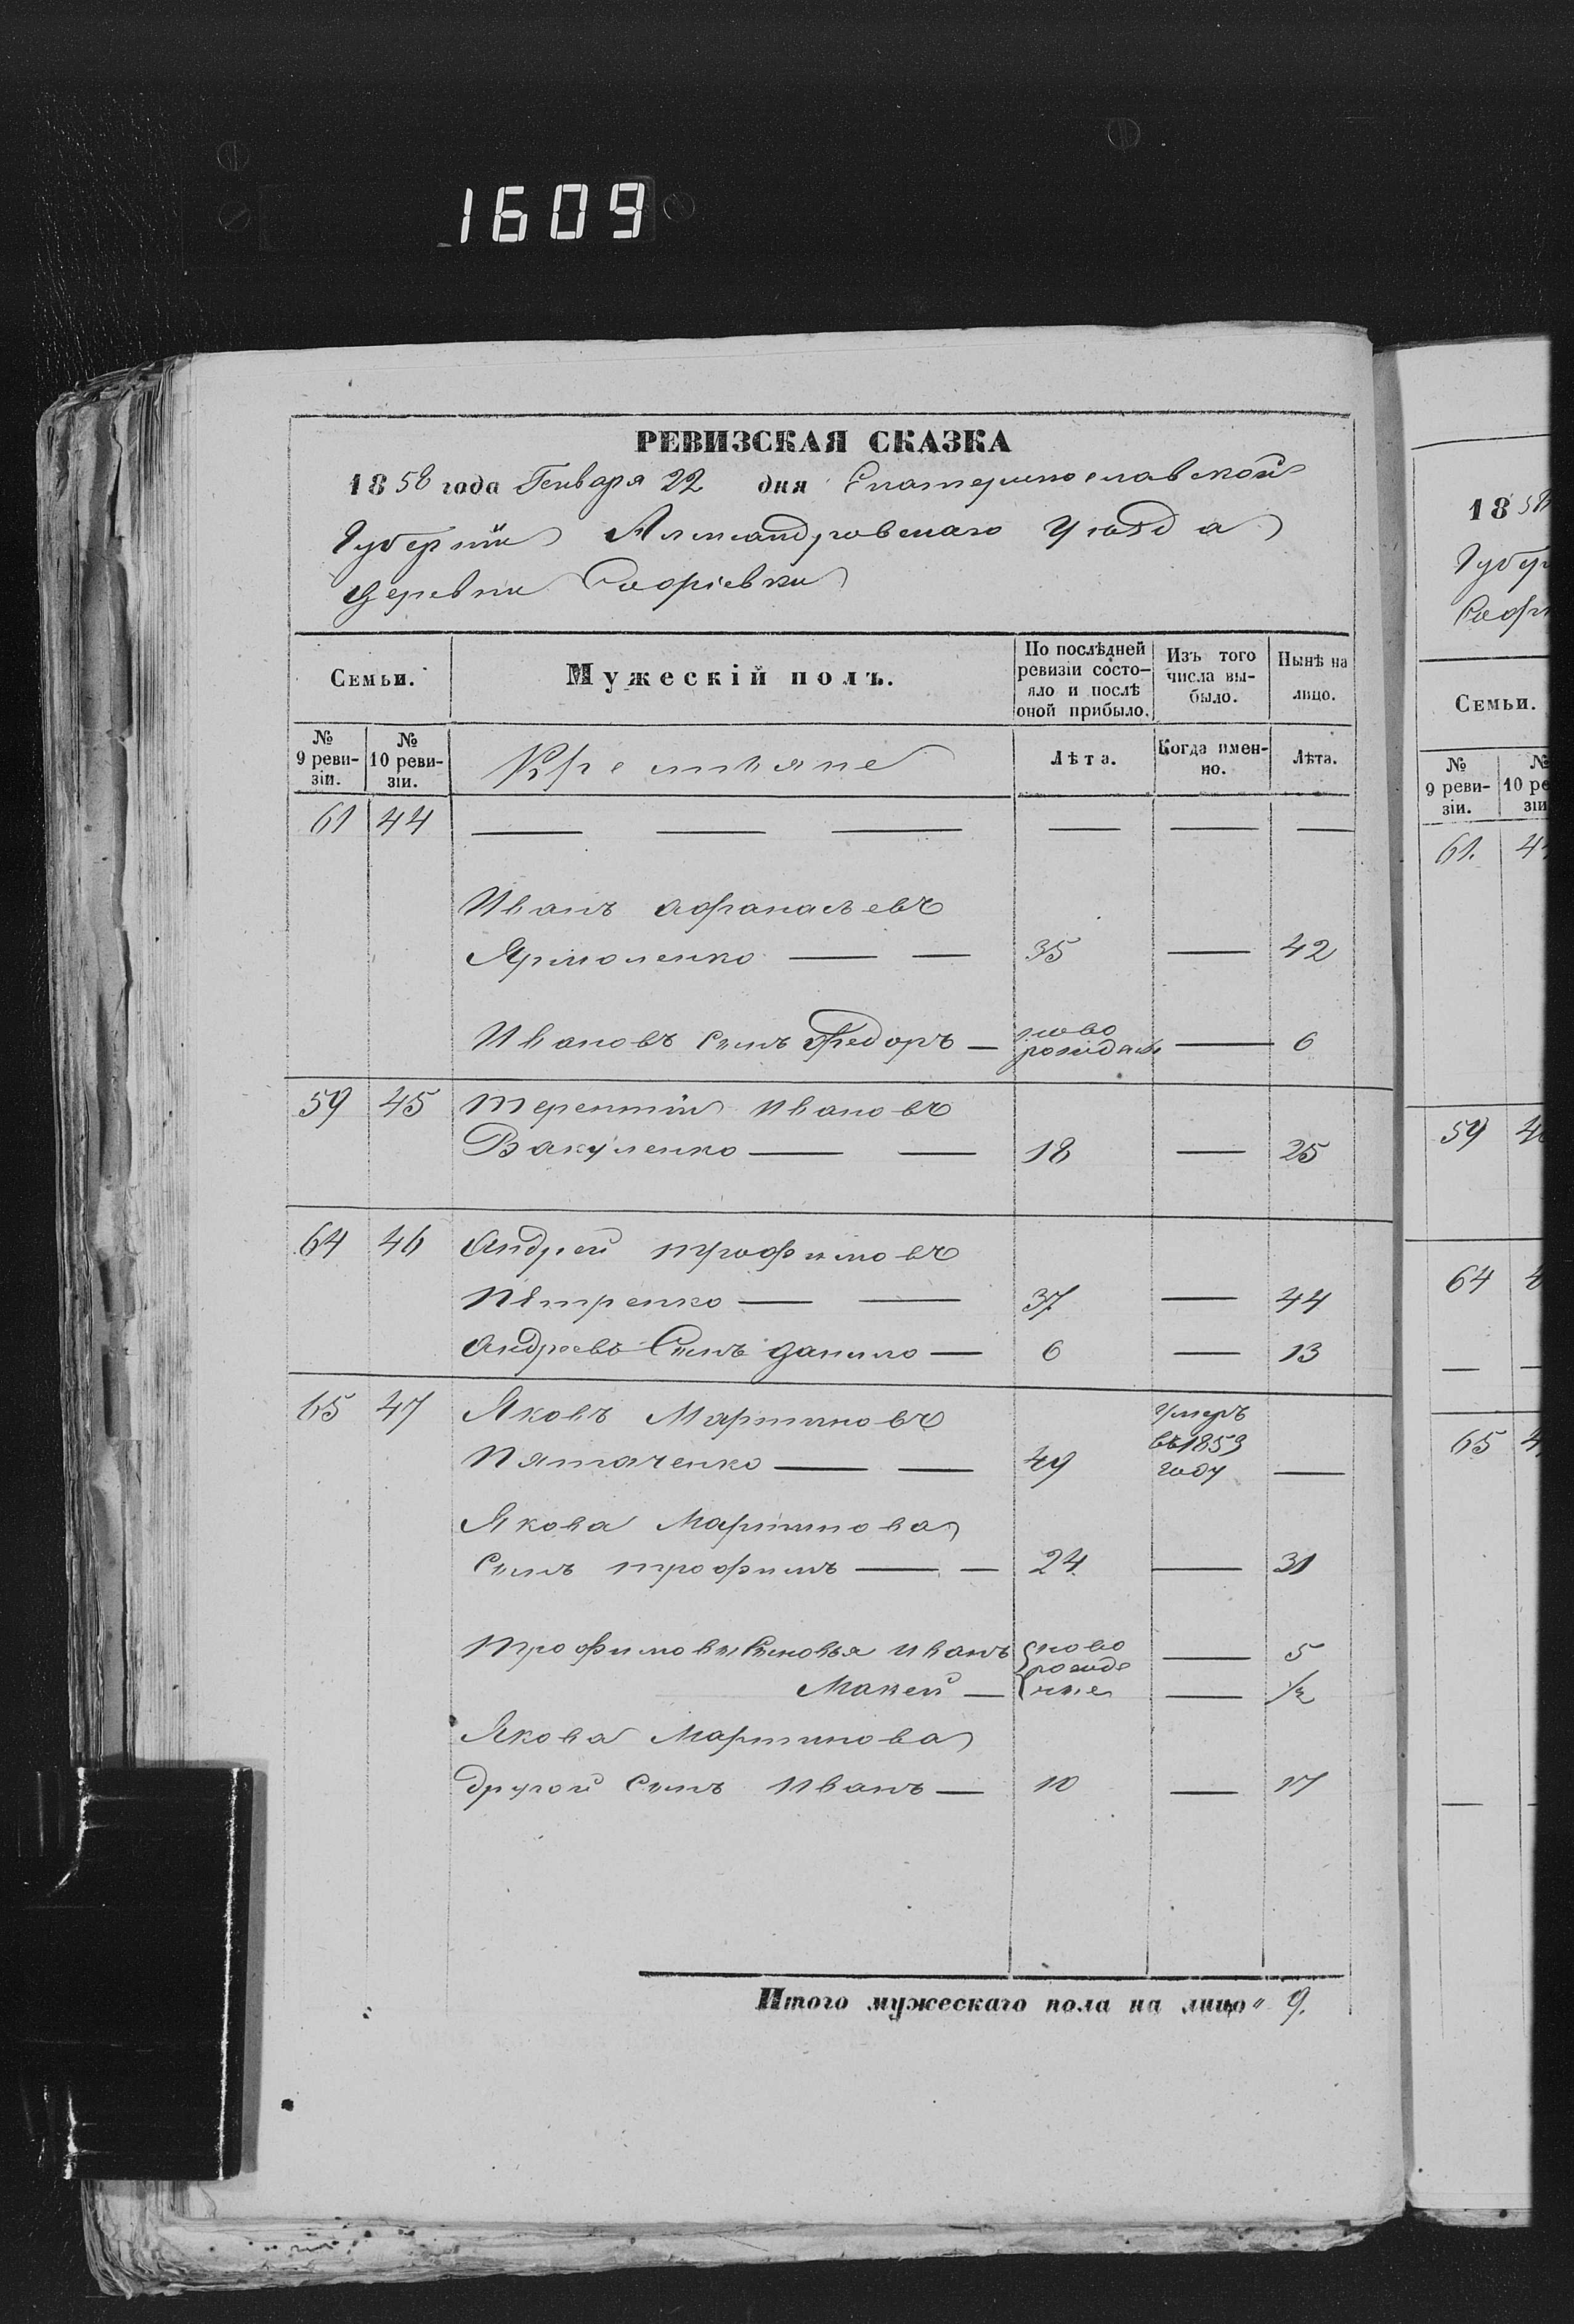 1609
РЕВИЗСКАЯ СКАЗКА
1858 года Генваря 22 дня Екатеринославской
Губерніи Александровскаго Уѣзда
Деревни Софіевки
Семьи. Мужескій полъ. По послѣдней ревизіи состояло и послѣ оной прибыло. Изъ того числа выбыло. Нынѣ на лицо.
№ 9 ревизіи. № 10 ревизіи. Крестьяне Лѣта. Когда именно. Лѣта.
61 44 — — — — — —
Иванъ Афанасьевъ
Ярмоленко — — 35 — 42
Ивановъ Сынъ Федоръ — ново рожденъ — 6
59 45 Терентій Ивановъ
Вакуленко — — 18 — 25
64 46 Андрей Трофимовъ
Пѣтренко — — 37 — 44
Андреевъ Сынъ Данило — 6 — 13
65 47 Яковъ Мартиновъ
Пятаченко — — 49 Умеръ въ 1853 году —
Якова Мартинова
Сынъ Трофимъ — — 24 — 31
Трофимовы Сыновья Иванъ ново — 5
Мокей — рожденые — ½
Якова Мартинова
другой Сынъ Иванъ — 10 — 17
Итого мужескаго пола на лицо „ 9.
18 58
Губер
Софі
Семьи.
№ 9 ревизіи. № 10 ре зіи
61. 4
59 4
64 4
— —
65 4
— —